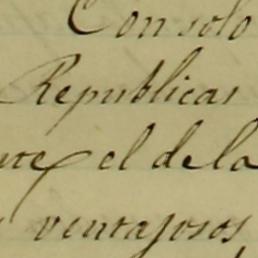 Con solo
Republicas
el de la
ventajosos